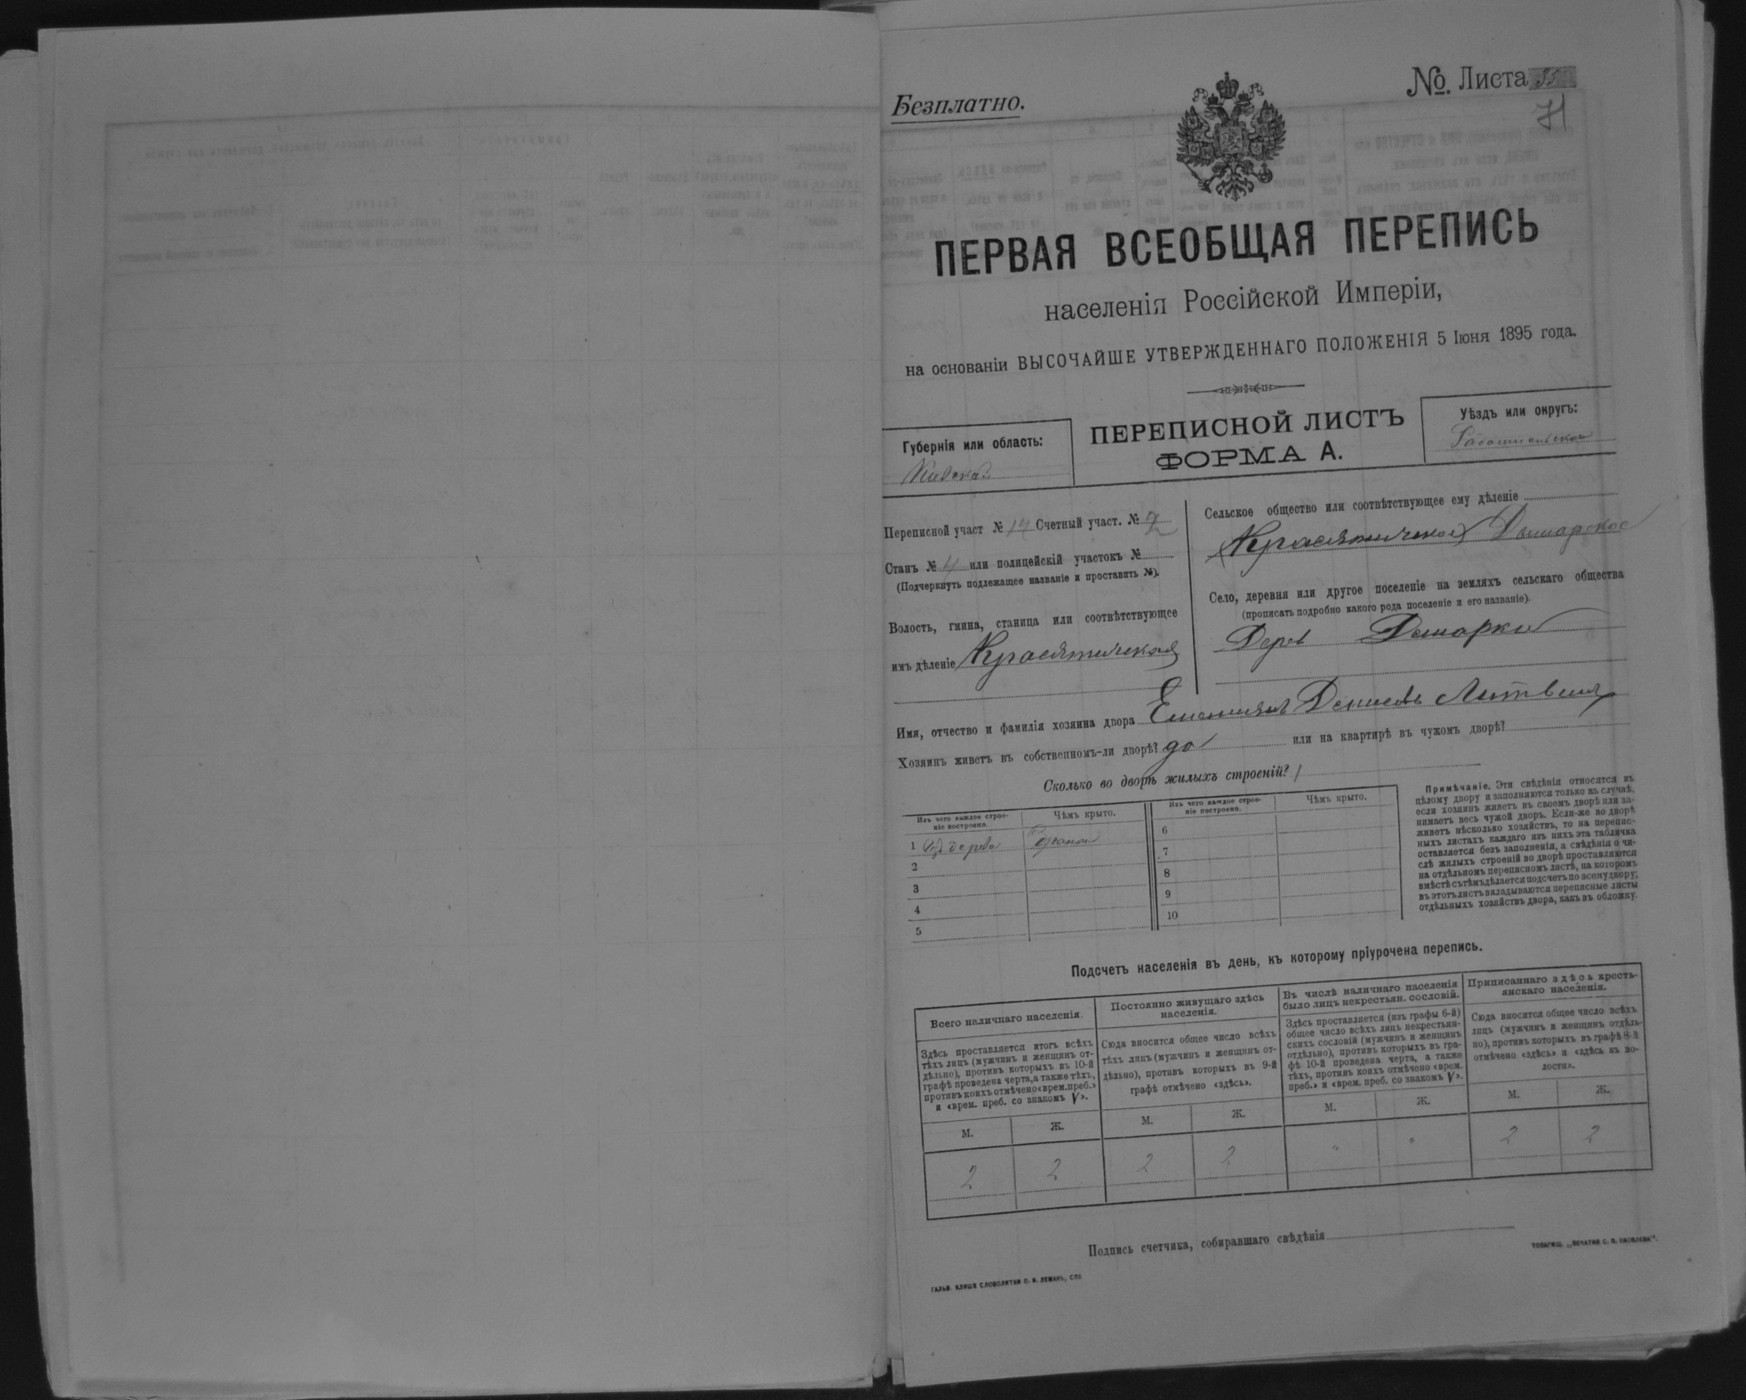 Безплатно.
№ Листа 55
71
ПЕРВАЯ ВСЕОБЩАЯ ПЕРЕПИСЬ
населенія Россійской Имперіи,
на основаніи ВЫСОЧАЙШЕ УТВЕРЖДЕННАГО ПОЛОЖЕНІЯ 5 Іюня 1895 года.
Губернія или область:
Кіевская
ПЕРЕПИСНОЙ ЛИСТЪ
ФОРМА А.
Уѣздъ или округъ:
Переписной участ № 14 Счетный участ. № 7
Станъ № 4 или полицейскій участокъ №
(Подчеркнуть подлежащее названіе и проставить №).
Волость, гмина, станица или соотвѣтствующее
имъ дѣленіе Красятичская
Сельское общество или соотвѣтствующее ему дѣленіе
Красятичское Дымарское
Село, деревня или другое поселеніе на земляхъ сельскаго общества
(прописать подробно какого рода поселеніе и его названіе).
Дерев Дымарки
Имя, отчество и фамилія хозяина двора Емельянъ Денисовъ Литвинъ
Хозяинъ живетъ въ собственномъ-ли дворѣ? да или на квартирѣ въ чужомъ дворѣ?
Сколько во дворѣ жилыхъ строеній? 1
Изъ чего каждое строе-
ніе построено.
Чѣмъ крыто.
Изъ чего каждое строе-
ніе построено.
Чѣмъ крыто.
1 Изъ дерева
2
3
4
5
6
7
8
9
10
Примѣчаніе. Эти свѣдѣнія относятся къ
цѣлому двору и заполняются только въ случаѣ,
если хозяинъ живетъ въ своемъ дворѣ или за-
нимаетъ весь чужой дворъ. Если-же во дворѣ
живетъ нѣсколько хозяйствъ, то на перепис-
ныхъ листахъ каждаго изъ нихъ эта табличка
оставляется безъ заполненія, а свѣдѣнія о чи-
слѣ жилыхъ строеній во дворѣ проставляются
на отдѣльномъ переписномъ листѣ, на которомъ
вмѣстѣ съ тѣмъ дѣлается подсчетъ по всему двору;
въ этотъ листъ вкладываются переписные листы
отдѣльныхъ хозяйствъ двора, какъ въ обложку.
Подсчетъ населенія въ день, къ которому пріурочена перепись.
Всего наличнаго населенія.
Здѣсь проставляется итогъ всѣхъ
тѣхъ лицъ (мужчинъ и женщинъ от-
дѣльно), противъ которыхъ въ 10-й
графѣ проведена черта, а также тѣхъ,
противъ коихъ отмѣчено «врем. преб.»
и «врем. преб. со знакомъ V».
Постоянно живущаго здѣсь
населенія.
Сюда вносится общее число всѣхъ
тѣхъ лицъ (мужчинъ и женщинъ от-
дѣльно), противъ которыхъ въ 9-й
графѣ отмѣчено «здѣсь».
Въ числѣ наличнаго населенія
было лицъ некрестьян. сословій.
Здѣсь проставляется (изъ графы 6-й)
общее число всѣхъ лицъ некрестьян-
скихъ сословій (мужчинъ и женщинъ
отдѣльно), противъ которыхъ въ гра-
фѣ 10-й проведена черта, а также
тѣхъ, противъ коихъ отмѣчено «врем.
преб.» и «врем. преб. со знакомъ V».
Приписаннаго здѣсь кресть-
янскаго населенія.
Сюда вносится общее число всѣхъ
лицъ (мужчинъ и женщинъ отдѣль-
но), противъ которыхъ въ графѣ 8-й
отмѣчено «здѣсь» и «здѣсь въ во-
лости».
М. Ж. М. Ж. М. Ж. М. Ж.
2 2 2 2 " " 2 2
Подпись счетчика, собиравшаго свѣдѣнія
ГАЛЬВ. КЛИШЕ СЛОВОЛИТНИ О. И. ЛЕМАНЪ, СПБ
ТОВАРИЩ. „ПЕЧАТНЯ С. П. ЯКОВЛЕВА“.